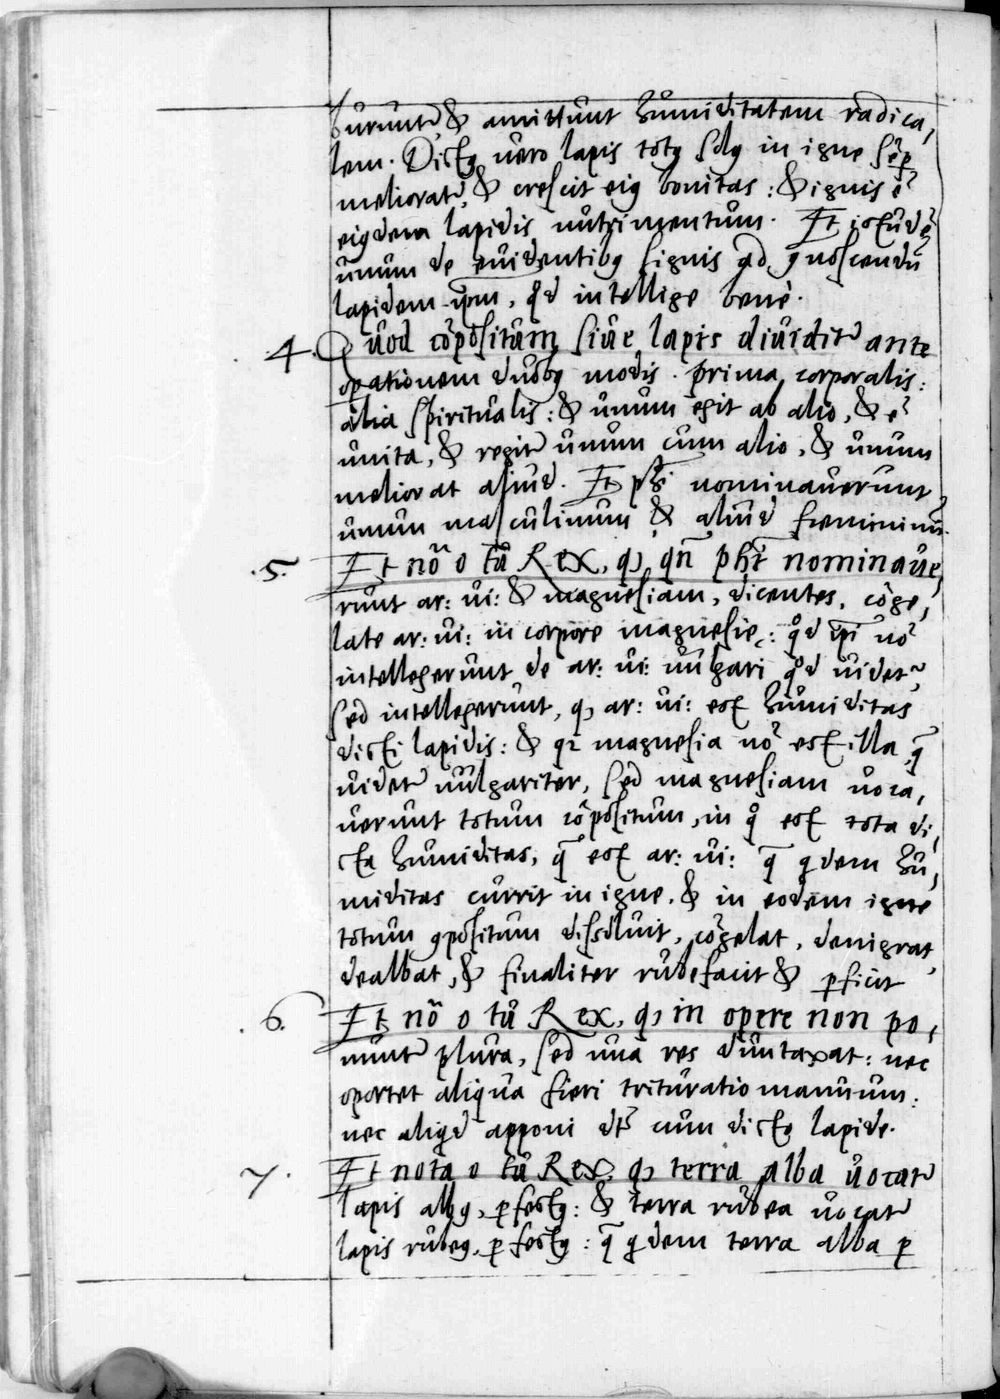 buruntr, & amittunt humiditatem radica,
lem. Dictꝰ vero lapis totꝰ solꝰ in igne sēp
melioratr, & crescit eiꝰ bonitas : & ignis ē
eiꝰdem lapidis nutrimentum. Et istud ē
unum de evidentibꝰ signis ad ꝯnoscendū
lapidem ip̄m, qd intellige benè.
4. Quod cōpositum sive lapis dividitr ante
oꝑationem duobꝰ modis. prima, corporalis:
alia spiritualis : & unum egit ab alio, & ē
unita, & regitr unum cum alio, & unum
meliorat aliud. Et phi nominaverunt
unum masculinum & aliud fœmininū.
.5. Et nō o tu Rex, qꝫ qn̄ phi nominave,
runt ar: vi: & magnesiam, dicentes, cōge,
late ar: vi: in corpore magnesię : qd ip̄i nō
intellegerunt de ar: vi: vulgari qd videtr,
sed intellegerunt, qꝫ ar: vi: est humiditas
dicti lapidis : & qꝫ magnesia nō est illa q̄
videtr vulgariter, sed magnesiam voca,
verunt totum cōpositum, in qo est tota di,
cta humiditas, q̄ est ar: vi: q̄ qdem hu,
miditas currit in igne, & in eodem igne
totum ꝯpositum dissoluit, cōgelat, denigrat,
dealbat, & finaliter rubefacit & ꝑficit
.6. Et nō o tu Rex, qꝫ in opere non po,
nuntr plura, sed una res duntaxat : nec
oportet aliqua fieri trituratio manuum:
nec aliqd apponi dt cum dicto lapide.
7. Et nota o tu Rex, qꝫ terra alba vocatr
lapis albꝰ, ꝑfectꝰ : & terra rubea vocatr
lapis rubeꝰ, ꝑfectꝰ : q̄ qdem terra alba ꝑ